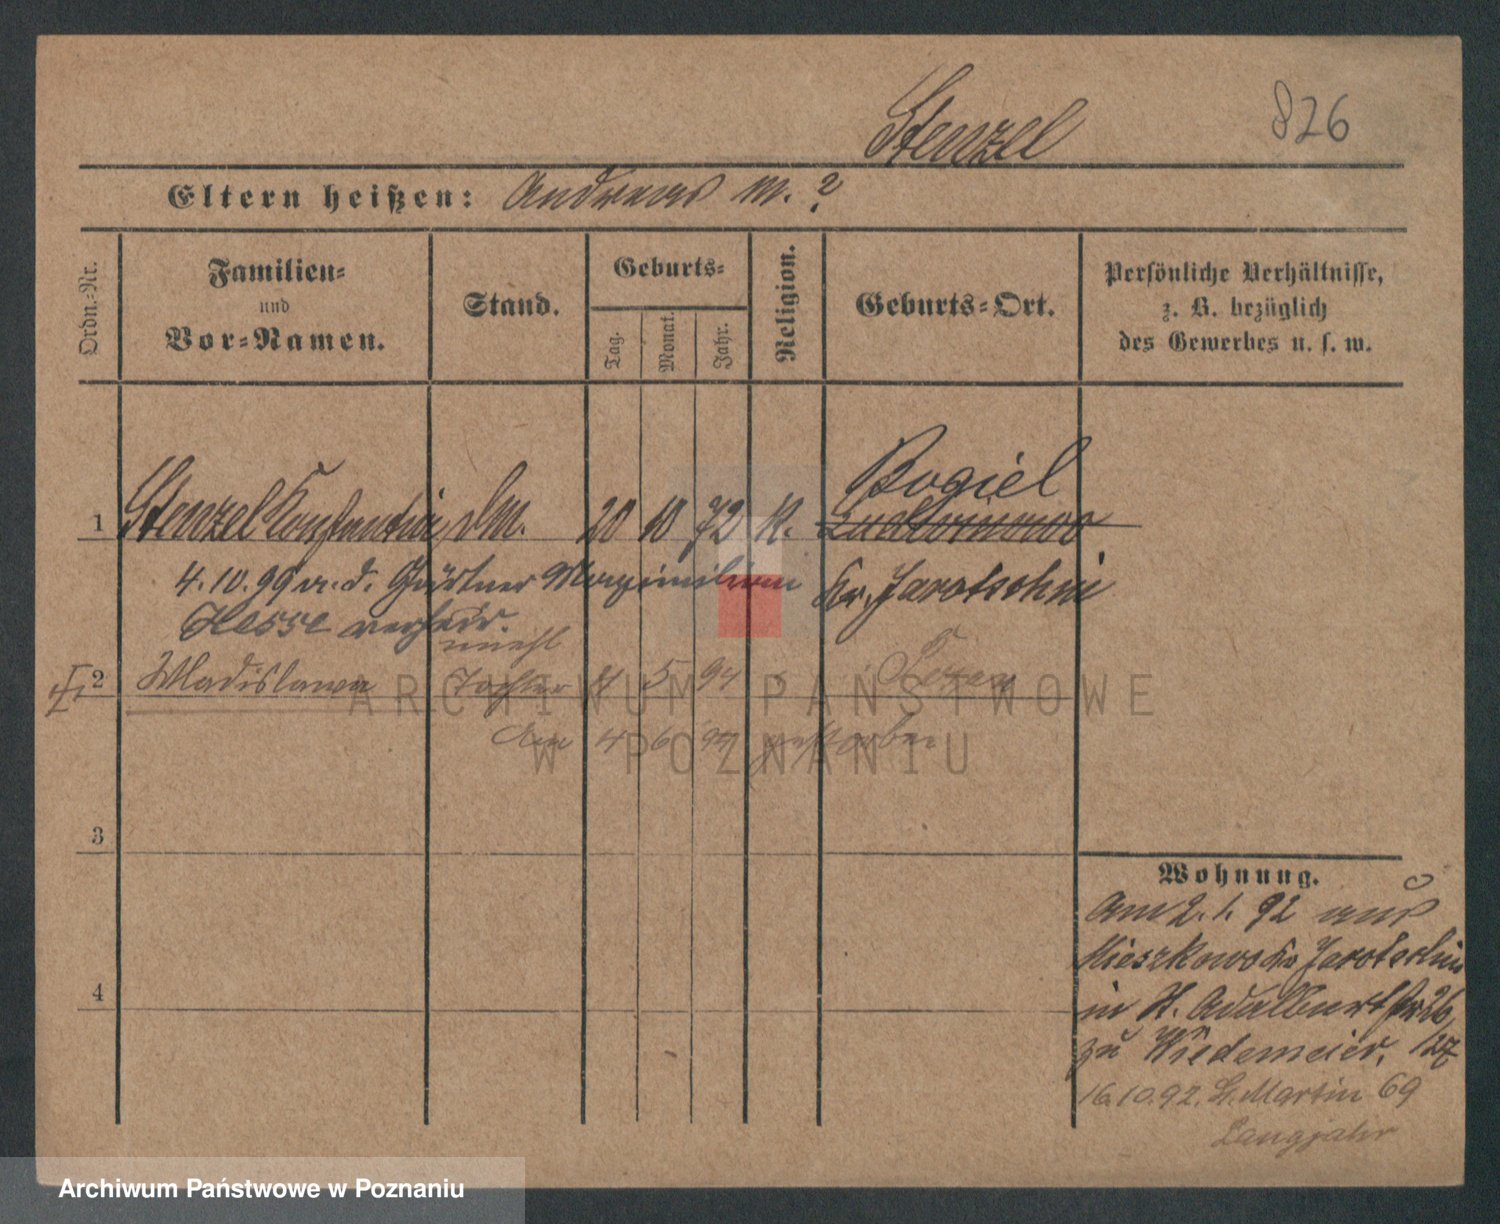 Stenzel
826
Eltern heißen: Andreas m. ?
Ordn.-Nr.
Familien-
und
Vor-Namen.
Stand.
Geburts-
Tag.
Monat.
Jahr.
Religion.
Geburts-Ort.
Persönliche Verhältnisse,
z. B. bezüglich
des Gewerbes u. s. w.
Bogiel
1 Stenzel Konstantia 20 10 72 K.
4.10.99 m. d. Gärtner Maximilian Kr. Jarotschin
Hesse verheir.
unehl
2 Wladislawa Tochter 5 94 Posen
Am 4 6 94 gestorben
3
4
Wohnung.
Am 2.1.92 aus
Mieszkowo Kr Jarotschin
in St. Adalbertstr 26/
zu Wiedemeier. 127
16.10.92. St. Martin 69
Langjahr
ARCHIWUM PAŃSTWOWE
W POZNANIU
Archiwum Państwowe w Poznaniu